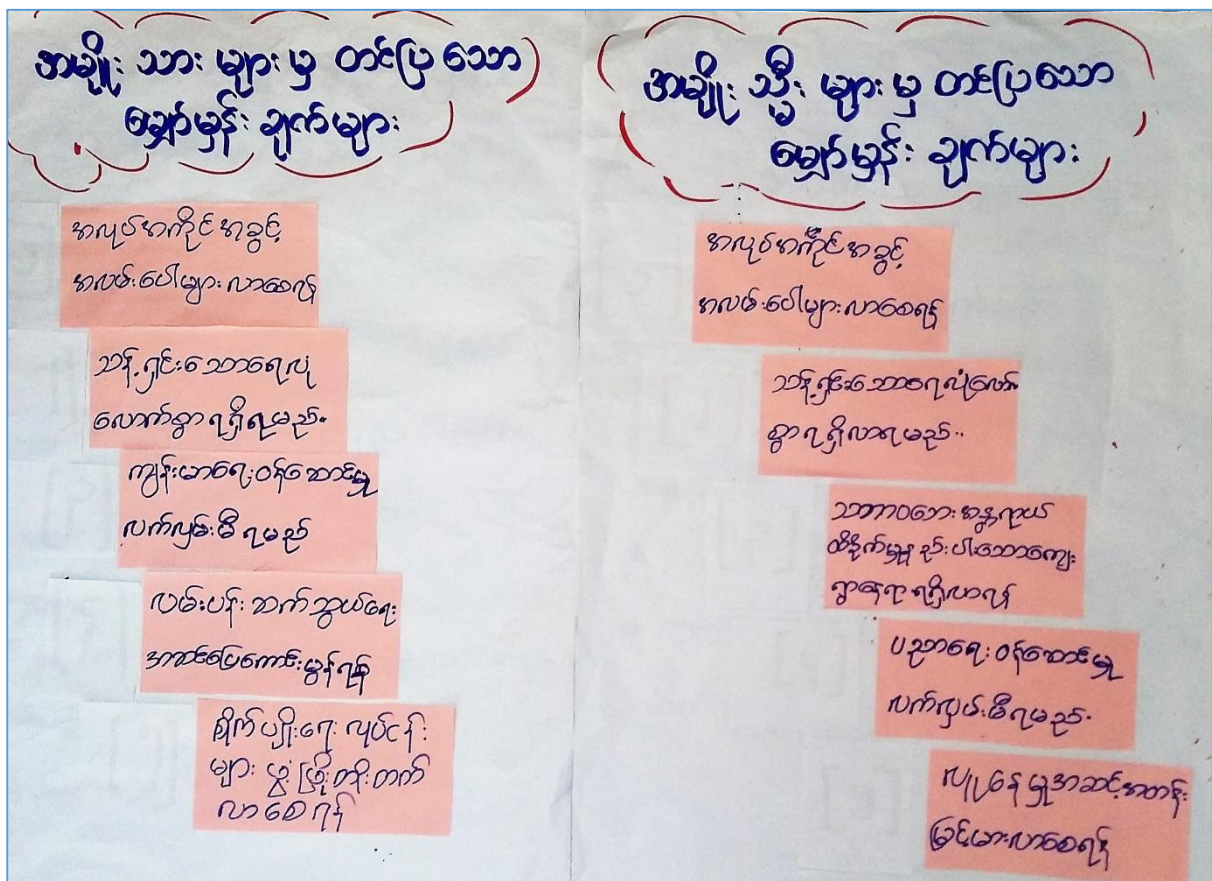 အမျိုးသားများမှ တင်ပြသော
မျှော်မှန်းချက်များ
အလုပ်အကိုင်အခွင့်
အလမ်းပေါများလာစေရန်
သန့်ရှင်းသောရေလုံ
လောက်စွာရရှိရမည်။
ကျန်းမာရေးဝန်ဆောင်မှု
လက်လှမ်းမီရမည်
လမ်းပန်းဆက်သွယ်ရေး
အဆင်ပြေကောင်းမွန်ရန်
စိုက်ပျိုးရေးလုပ်ငန်း
များ ဖွံ့ဖြိုးတိုးတက်
လာစေရန်
အမျိုးသ္မီးများမှ တင်ပြသော
မျှော်မှန်းချက်များ
အလုပ်အကိုင်အခွင့်
အလမ်းပေါများလာစေရန်
သန့်ရှင်းသောရေလုံလောက်
စွာရရှိလာရမည်။
သဘာဝဘေးအန္တရာယ်
ထိခိုက်မှုနည်းပါးသောကျေး
ရွာနေရာရရှိလာရန်
ပညာရေးဝန်ဆောင်မှု
လက်လှမ်းမီရမည်။
လူနေမှုအဆင့်အတန်း
မြင့်မားလာစေရန်